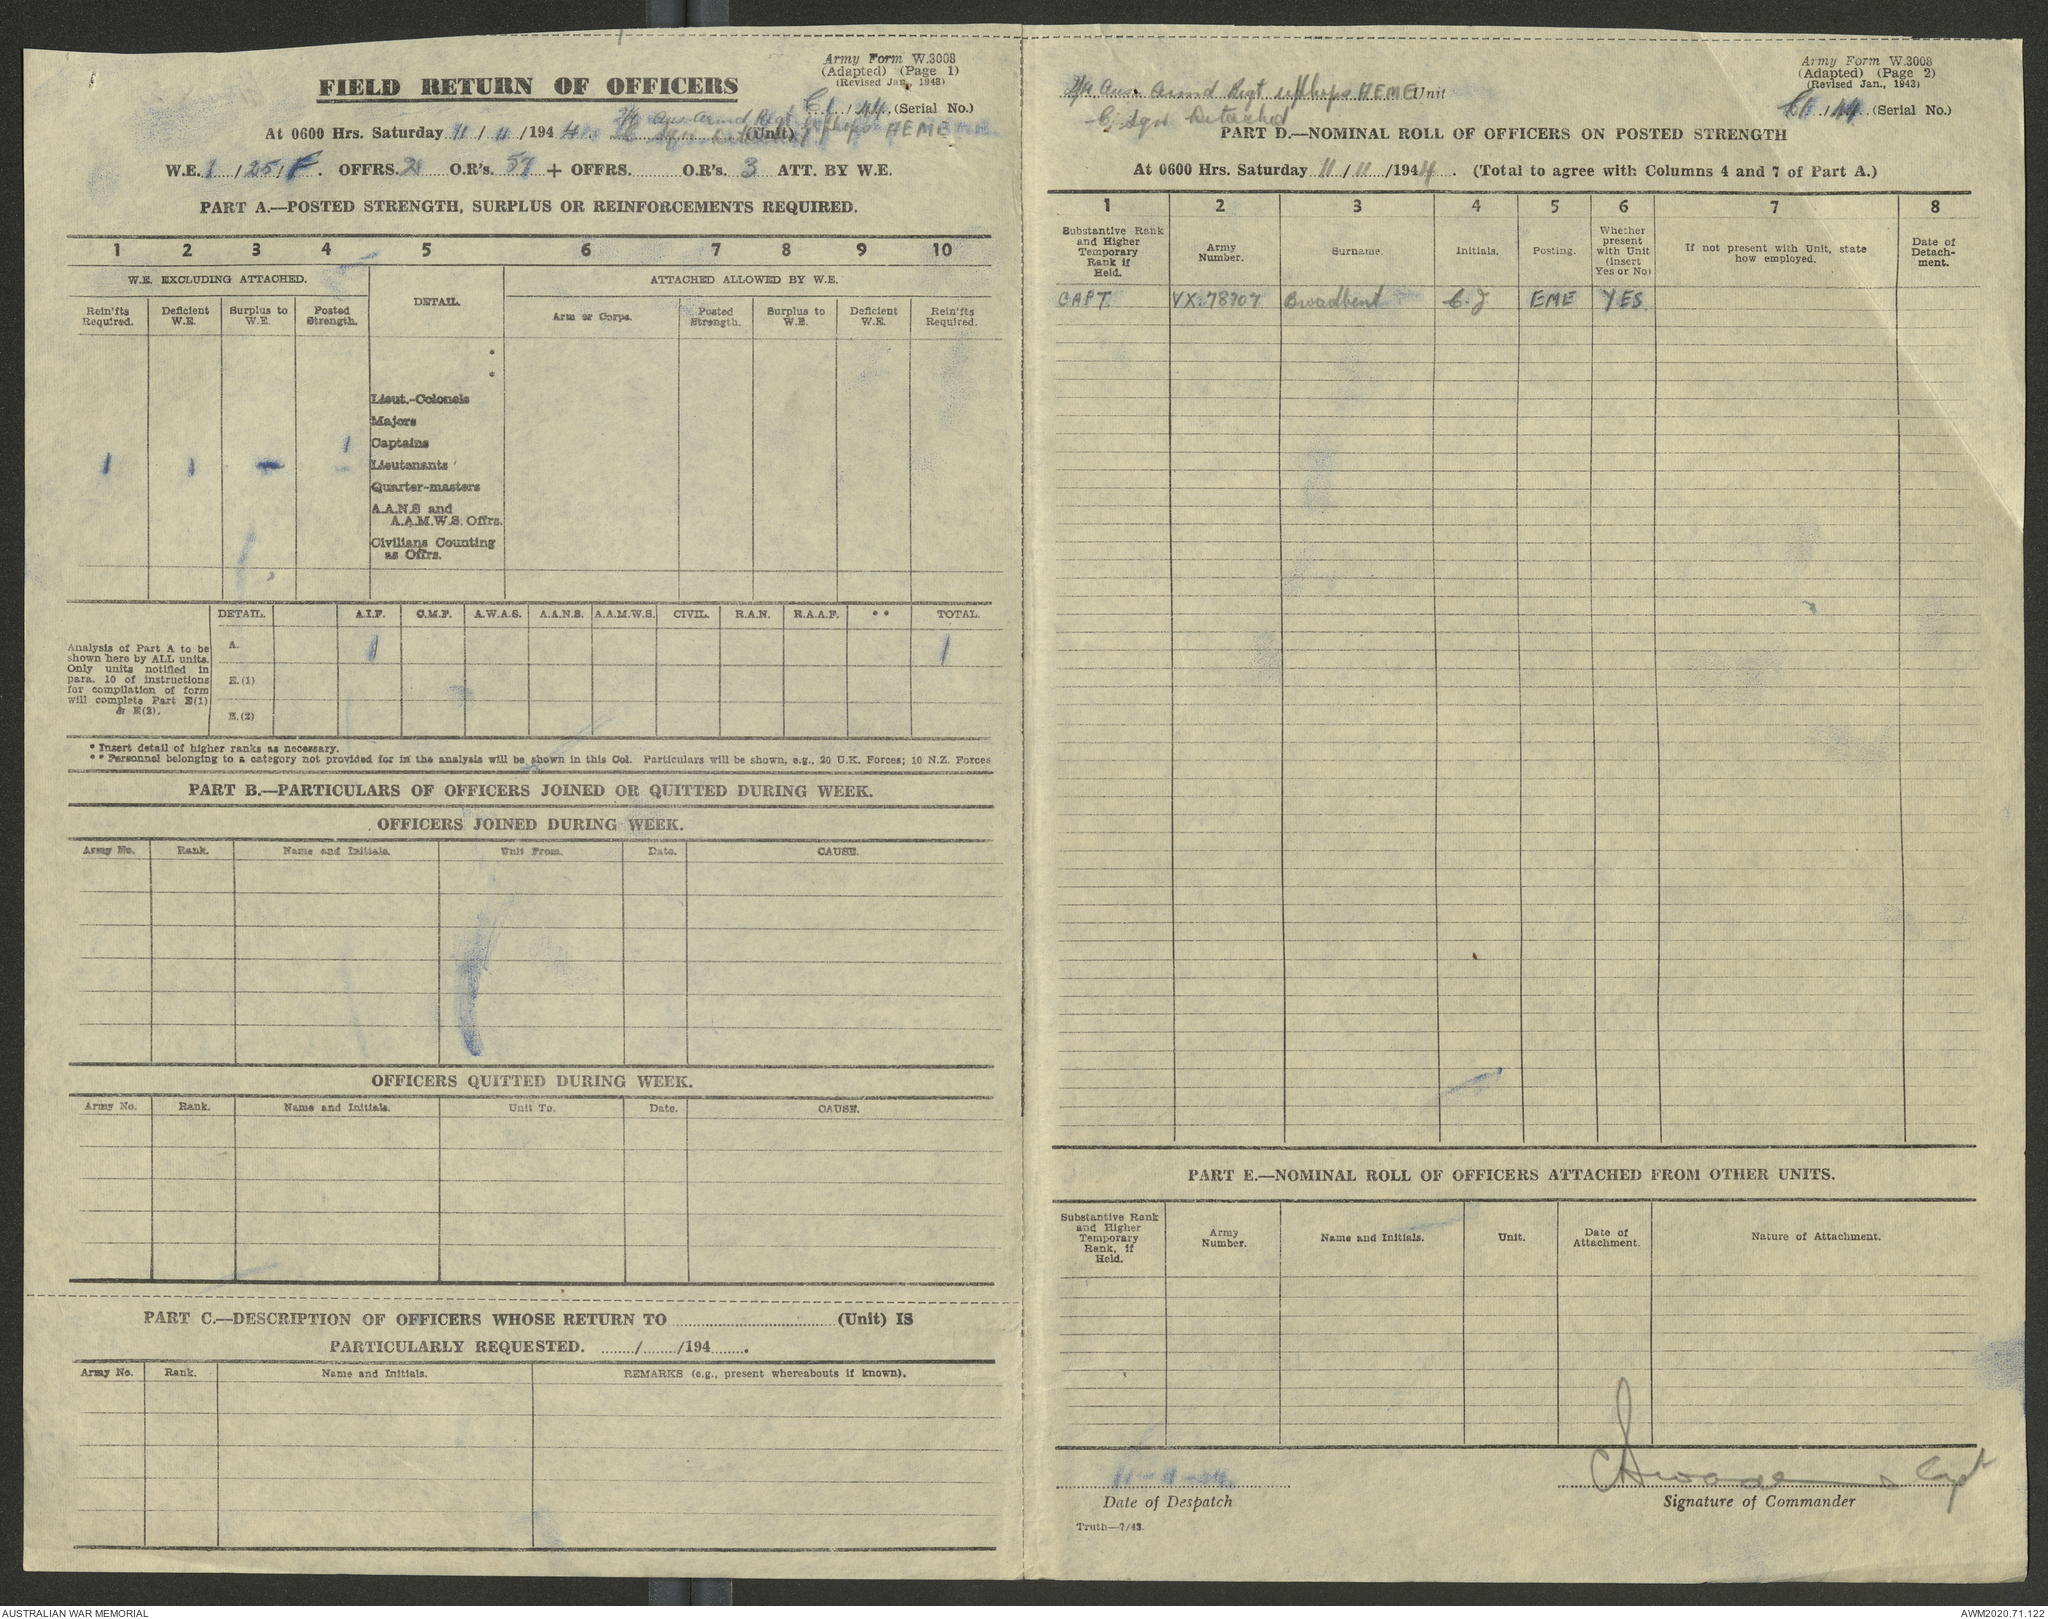 Army Form W.3008
(Adapted) (Page 1)
(Revised Jan., 1943)
FIELD RETURN OF OFFICERS
C1 / 44 (Serial No.)
At 0600 Hrs. Saturday 11 / 11 / 194 4. 2/4 Aus Armd Regt w/shops AEME (Unit)
W.E. 1 / 25 / F. OFFRS. 2 O.R's. 57 + OFFRS. O.R's. 3 ATT. BY W.E.
PART A.—POSTED STRENGTH, SURPLUS OR REINFORCEMENTS REQUIRED.
1 2 3 4 5 6 7 8 9 10
W.E. EXCLUDING ATTACHED. DETAIL. ATTACHED ALLOWED BY W.E.
Rein'fts Required. Deficient W.E. Surplus to W.E. Posted Strength. Arm or Corps. Posted Strength. Surplus to W.E. Deficient W.E. Rein'fts Required.
*
*
Lieut.-Colonels
Majors
1 Captains
1 1 - - Lieutenants
Quarter-masters
A.A.N.S and
A.A.M.W.S. Offrs.
Civilians Counting
as Offrs.
DETAIL. A.I.F. C.M.F. A.W.A.S. A.A.N.S. A.A.M.W.S. CIVIL. R.A.N. R.A.A.F. * * TOTAL.
Analysis of Part A to be
shown here by ALL units.
Only units notified in
para. 10 of instructions
for compilation of form
will complete Part E(1)
& E(2).
A. 1 1
E.(1)
E.(2)
* Insert detail of higher ranks as necessary.
* * Personnel belonging to a category not provided for in the analysis will be shown in this Col. Particulars will be shown, e.g., 20 U.K. Forces; 10 N.Z. Forces
PART B.—PARTICULARS OF OFFICERS JOINED OR QUITTED DURING WEEK.
OFFICERS JOINED DURING WEEK.
Army No. Rank. Name and Initials. Unit From. Date. CAUSE.
OFFICERS QUITTED DURING WEEK.
Army No. Rank. Name and Initials. Unit To. Date. CAUSE.
PART C.—DESCRIPTION OF OFFICERS WHOSE RETURN TO ........ (Unit) IS
PARTICULARLY REQUESTED. ......../......../194........
Army No. Rank. Name and Initials. REMARKS (e.g., present whereabouts if known).
Army Form W.3008
(Adapted) (Page 2)
(Revised Jan., 1943)
2/4 Aus. Armd Regt w/shops AEME Unit
C1 / 44 (Serial No.)
C Sqn Detached
PART D.—NOMINAL ROLL OF OFFICERS ON POSTED STRENGTH
At 0600 Hrs. Saturday 11 / 11 / 1944. (Total to agree with Columns 4 and 7 of Part A.)
1 2 3 4 5 6 7 8
Substantive Rank and Higher Temporary Rank if Held. Army Number. Surname. Initials. Posting. Whether present with Unit (insert Yes or No) If not present with Unit, state how employed. Date of Detach-ment.
CAPT. VX.78707 Broadbent C.J EME YES.
PART E.—NOMINAL ROLL OF OFFICERS ATTACHED FROM OTHER UNITS.
Substantive Rank and Higher Temporary Rank, if Held. Army Number. Name and Initials. Unit. Date of Attachment. Nature of Attachment.
Capt
Date of Despatch Signature of Commander
Truth—7/43.
AUSTRALIAN WAR MEMORIAL AWM2020.71.122